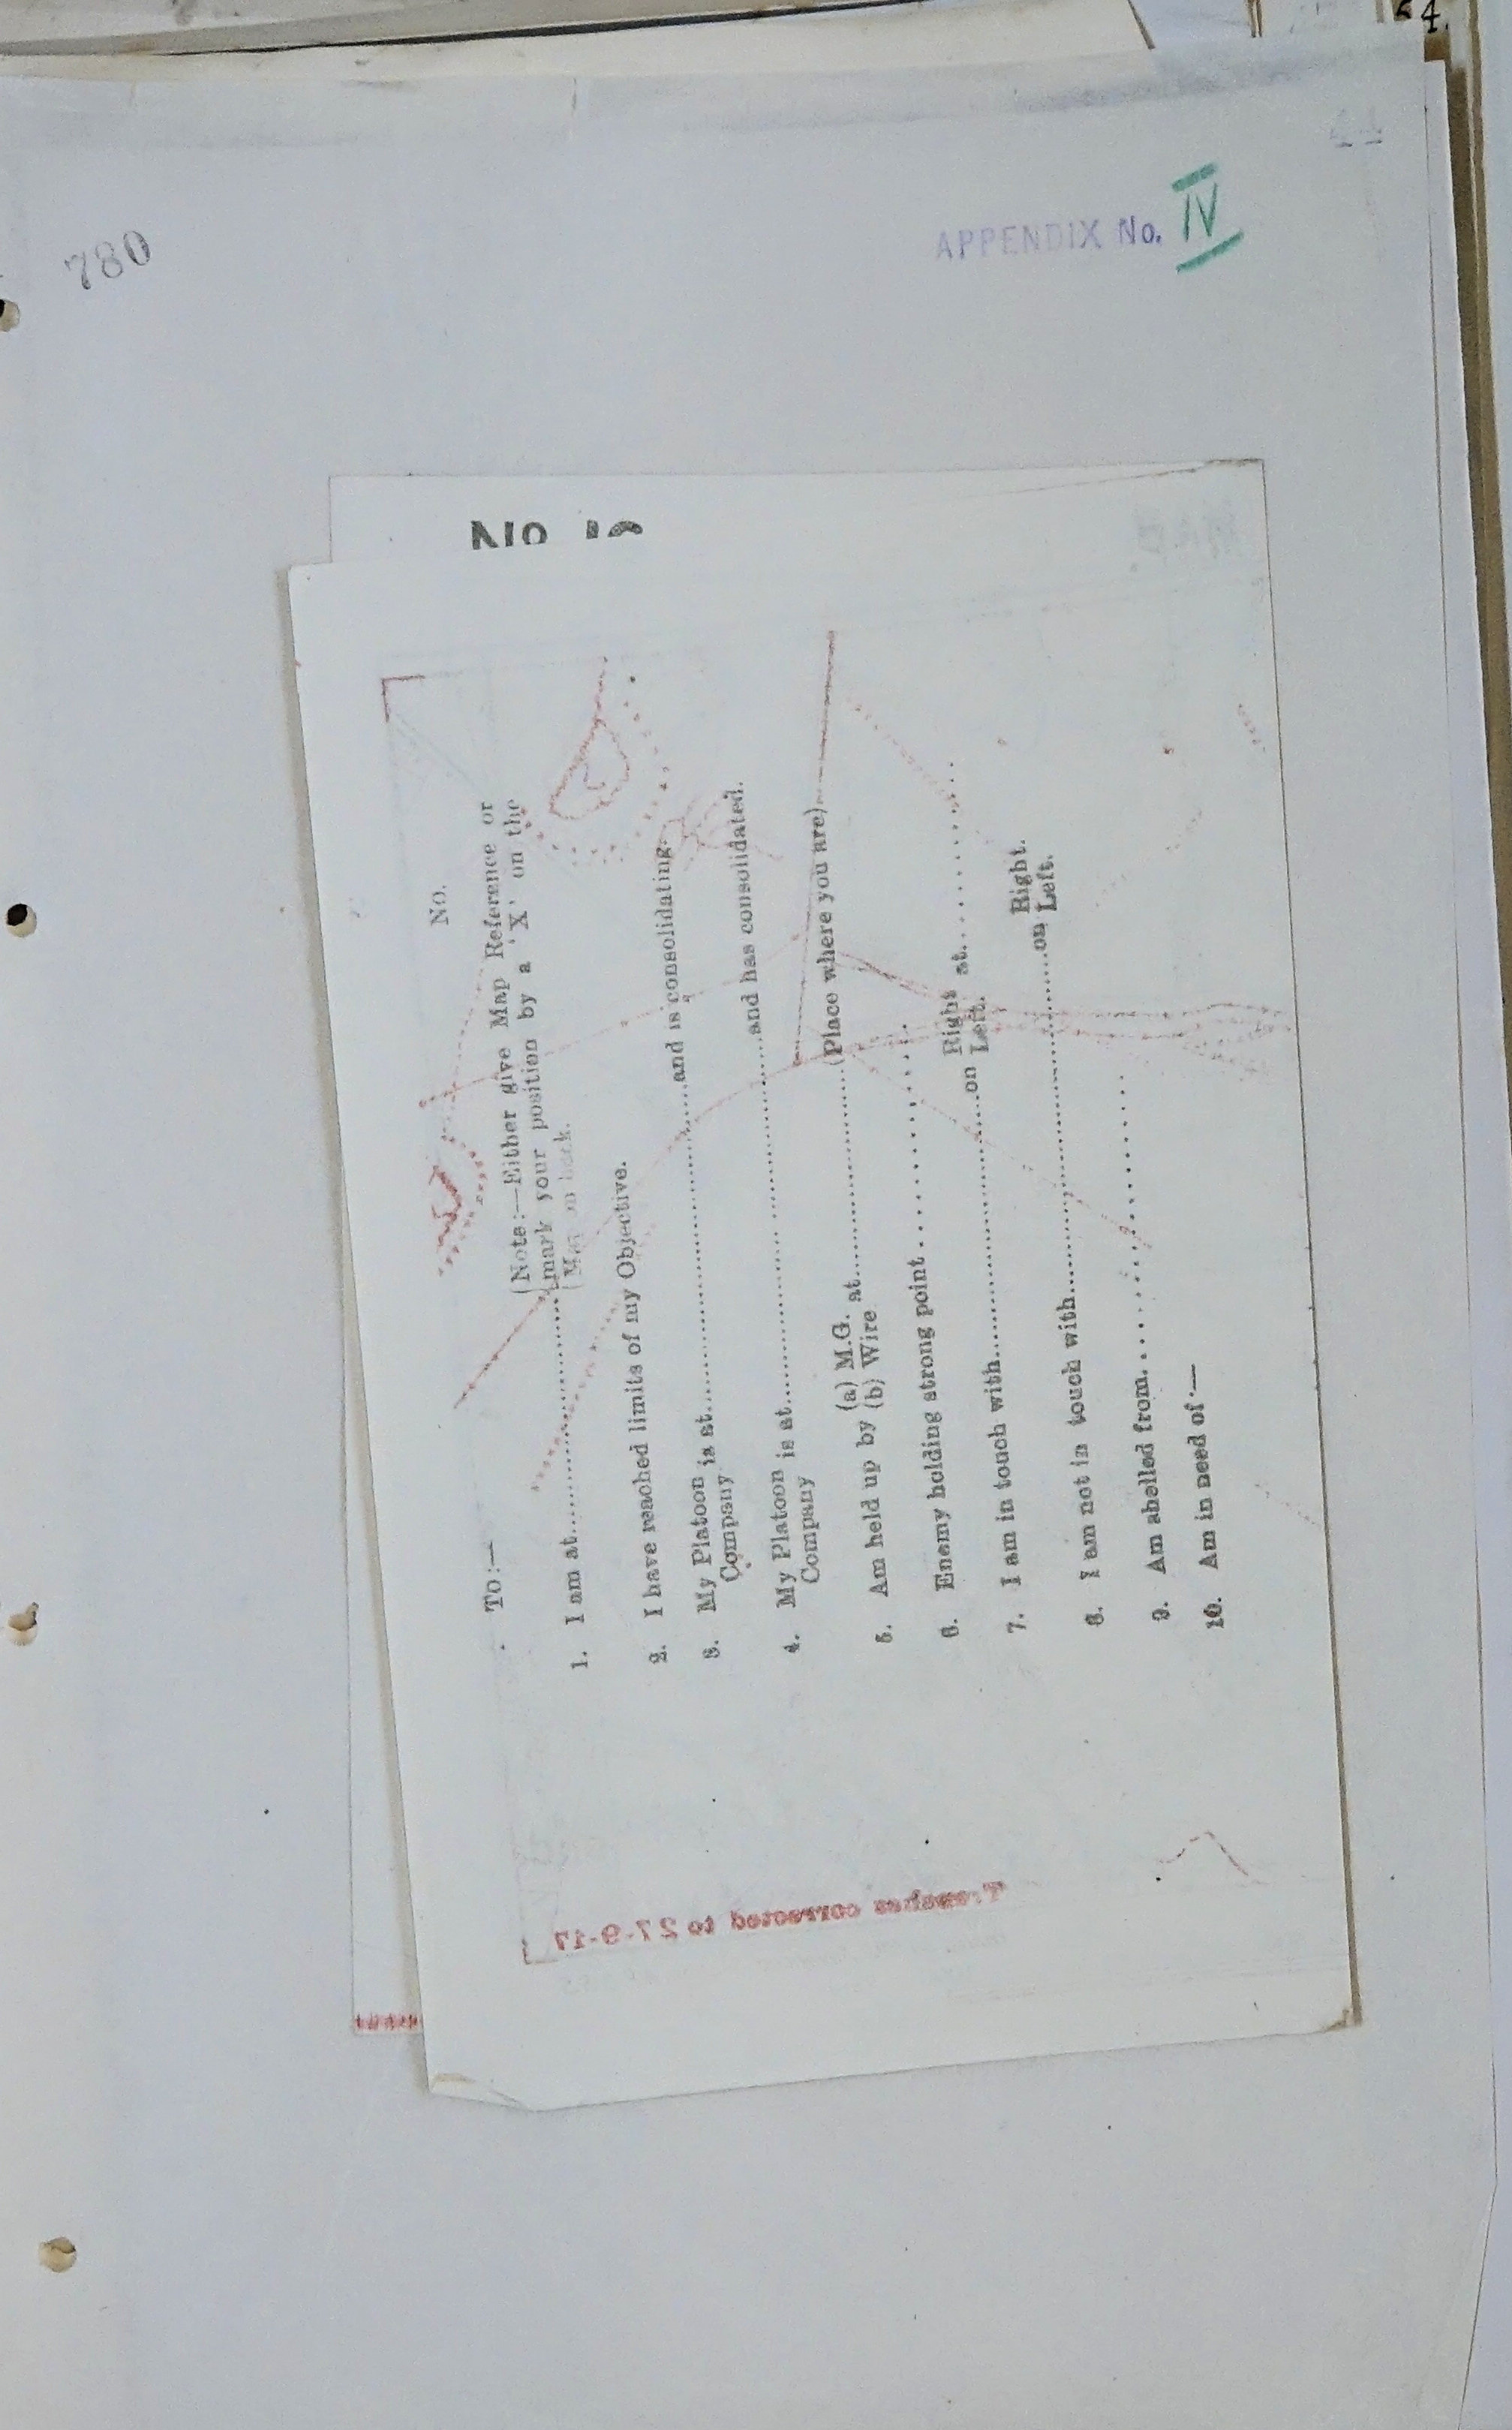 54.
780
APPENDIX No. IV
No.
To:—
(Note:—Either give Map Reference or
1. I am at..............................mark your position by a 'X' on the
(Map on back.
2. I have reached limits of my Objective.
3. My Platoon is at..............................and is consolidating.
Company
4. My Platoon is at..............................and has consolidated.
Company
5. Am held up by (a) M.G. at....................(Place where you are)
(b) Wire
6. Enemy holding strong point....................
7. I am in touch with..............................on Right at....................
Left.
8. I am not in touch with..............................on Right.
Left.
9. Am shelled from....................
10. Am in need of:—
Trenches corrected to 27-9-17